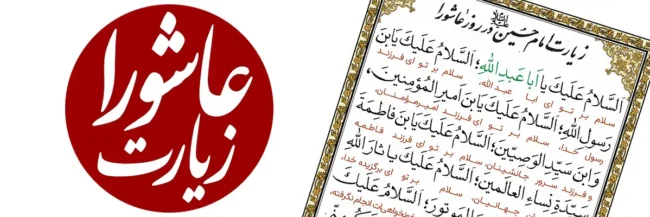 عاشورا
زیارت
زیارت امام حسین علیه السلام در روز عاشورا
اَلسَّلامُ عَلَيْكَ يا اَبا عَبْدِاللهِ، اَلسَّلامُ عَلَيْكَ يَابْنَ
سلام بر تو ای ابا عبدالله، سلام بر تو ای فرزند
رَسُولِ اللهِ، اَلسَّلامُ عَلَيْكَ يَابْنَ اَميرِ الْمُؤْمِنينَ،
رسول خدا، سلام بر تو ای فرزند امیرمؤمنان،
وَابْنَ سَيِّدِ الْوَصِيّينَ، اَلسَّلامُ عَلَيْكَ يَابْنَ فاطِمَةَ
و فرزند سرور جانشینان، سلام بر تو ای فرزند فاطمه
سَيِّدَةِ نِساءِ الْعالَمينَ، اَلسَّلامُ عَلَيْكَ يا ثارَ اللهِ
جهانیان، سلام بر تو ای برگزیده خدا،
الْمَوْتُورَ، اَلسَّلامُ عَلَيْكَ
انجام نگرفته،